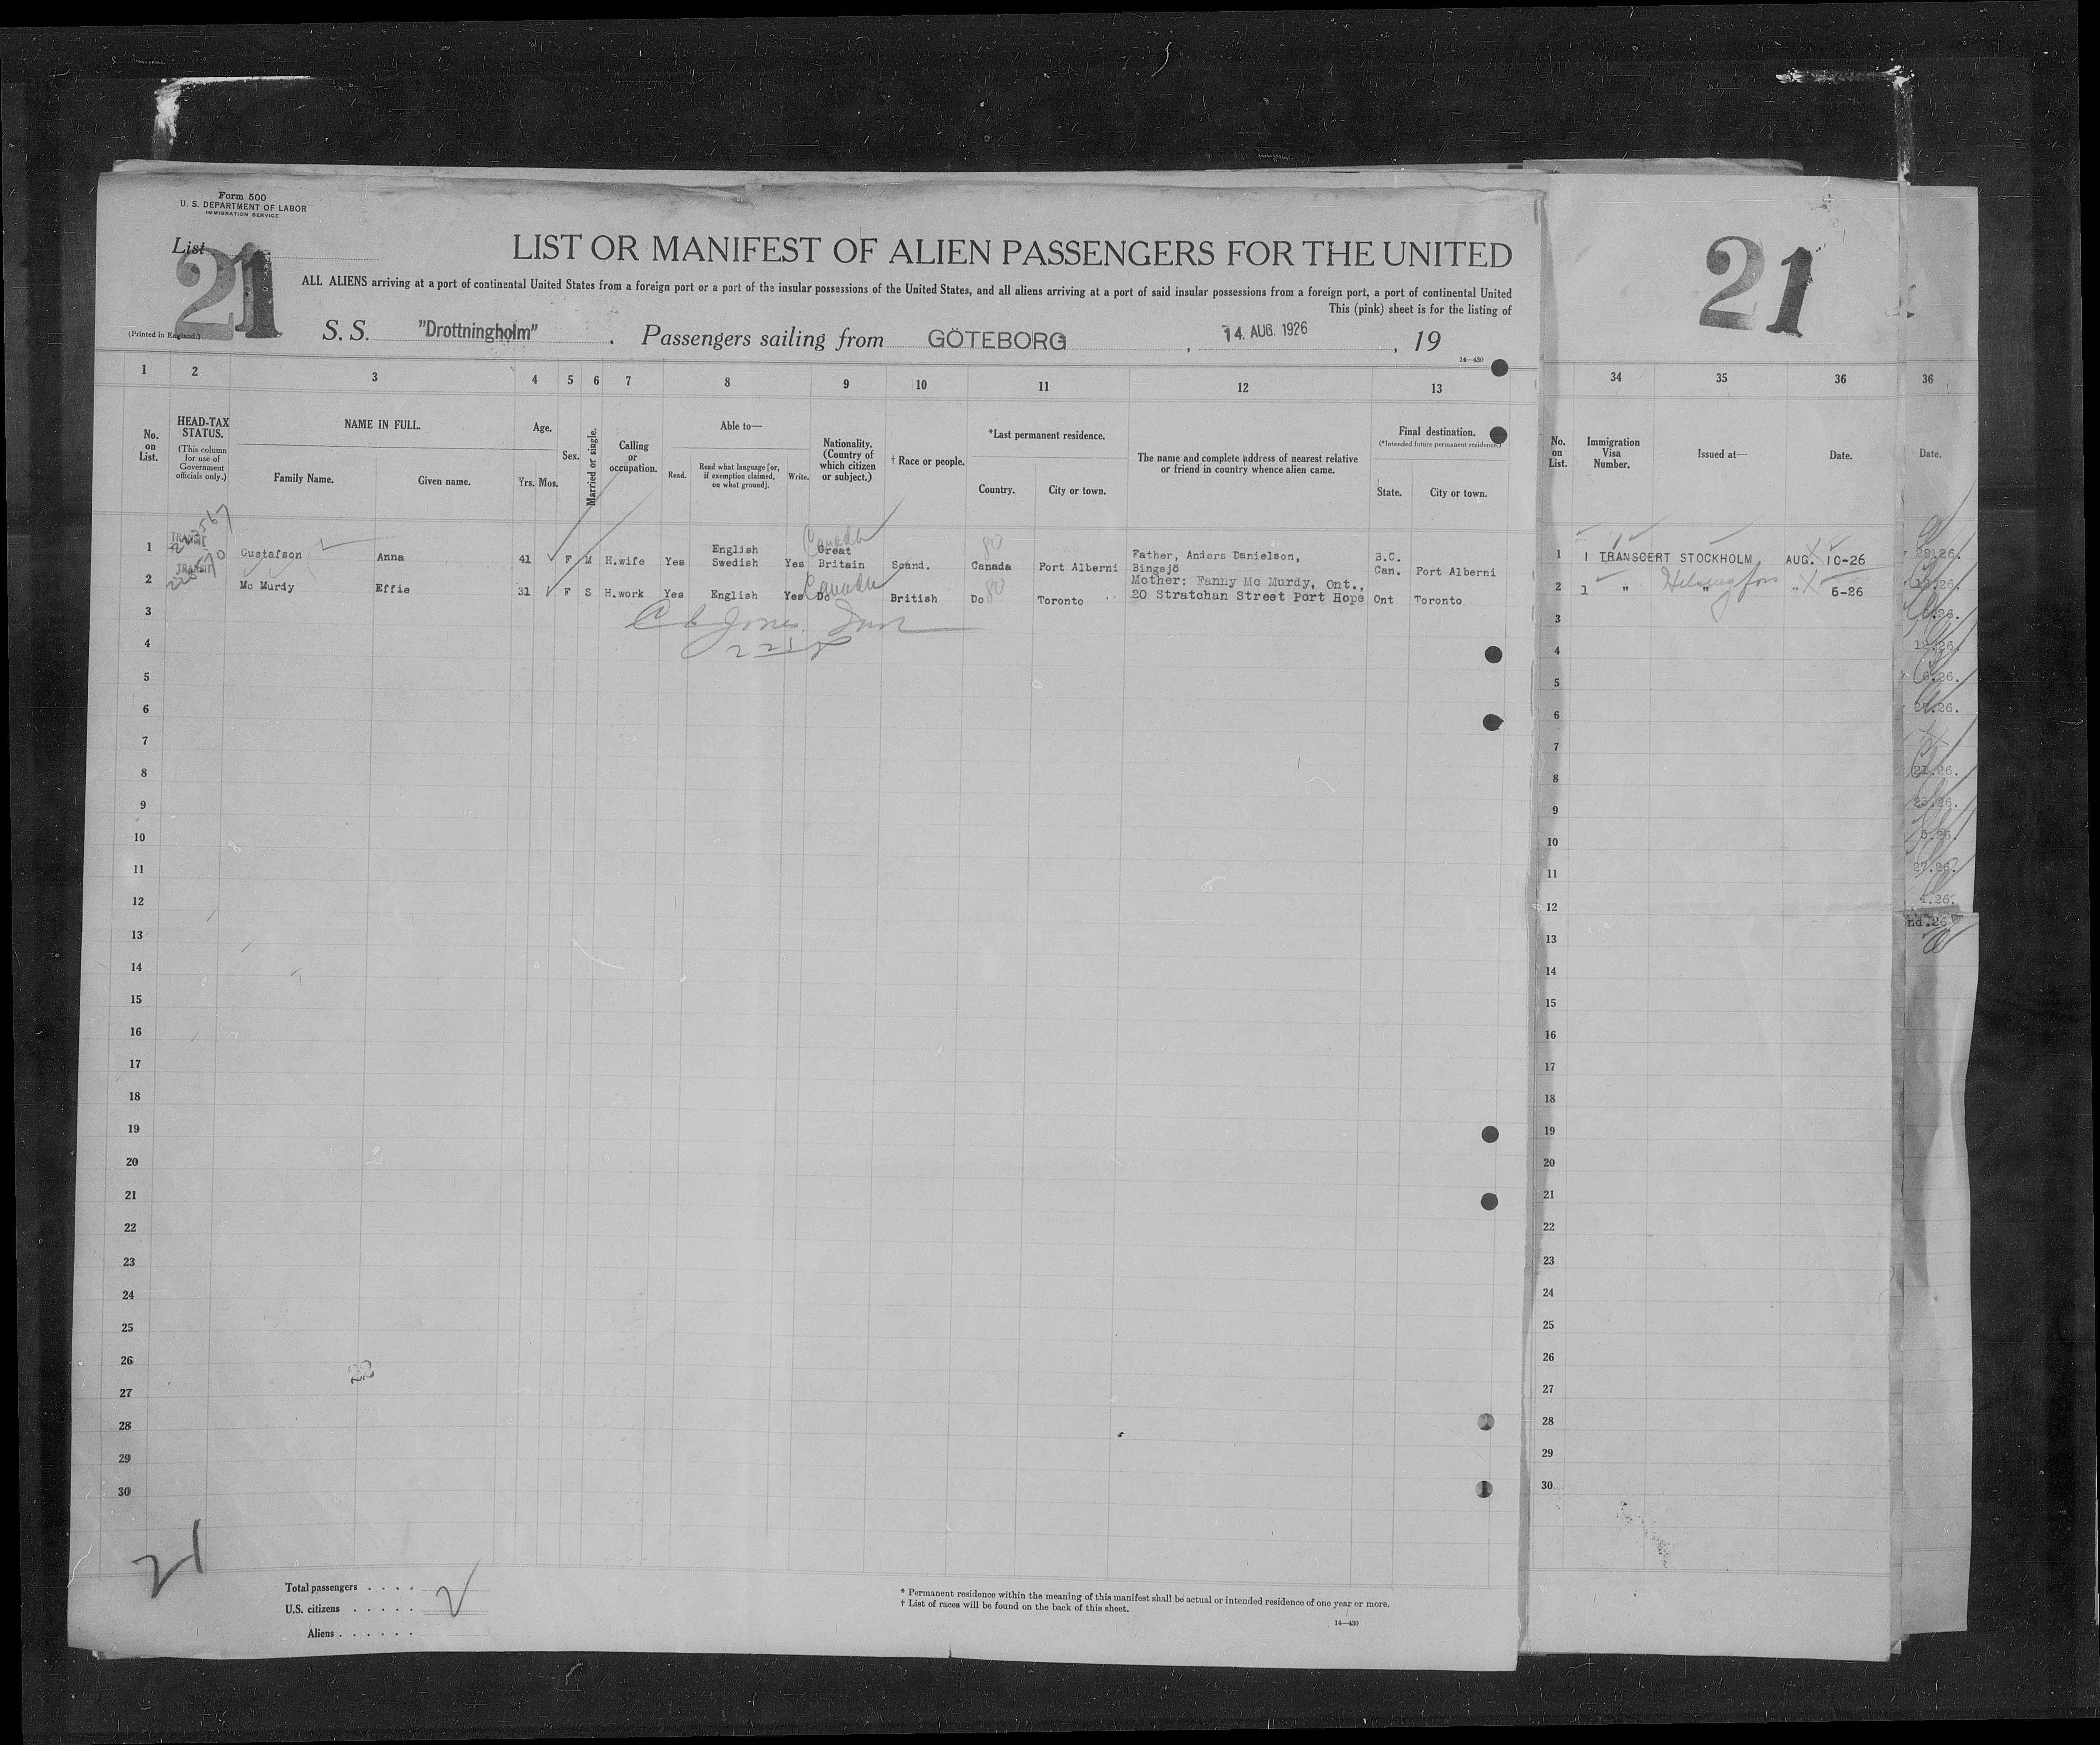 Form 500
U. S. DEPARTMENT OF LABOR
IMMIGRATION SERVICE
List
21
LIST OR MANIFEST OF ALIEN PASSENGERS FOR THE UNITED
ALL ALIENS arriving at a port of continental United States from a foreign port or a port of the insular possessions of the United States, and all aliens arriving at a port of said insular possessions from a foreign port, a port of continental United
This (pink) sheet is for the listing of
(Printed in England.)
S. S. "Drottningholm" . Passengers sailing from GÖTEBORG , 14. AUG. 1926 , 19
14—430
1 2 3 4 5 6 7 8 9 10 11 12 13
No. on List.
HEAD-TAX STATUS.
(This column for use of Government officials only.)
NAME IN FULL.
Family Name. Given name.
Age.
Yrs. Mos.
Sex.
Married or single.
Calling or occupation.
Able to—
Read. Read what language [or, if exemption claimed, on what ground]. Write.
Nationality. (Country of which citizen or subject.)
† Race or people.
*Last permanent residence.
Country. City or town.
The name and complete address of nearest relative or friend in country whence alien came.
Final destination.
(*Intended future permanent residence.)
State. City or town.
1 TRANSIT Gustafson Anna 41 F M H.wife Yes English Swedish Yes Great Britain Canada Scand. Canada Port Alberni Father, Anders Danielson, Bingsjö B.C. Can. Port Alberni
2 TRANSIT Mc Murdy Effie 31 F S H.work Yes English Yes Do Canada British Do Toronto Mother: Fanny Mc Murdy, Ont., 20 Stratchan Street Port Hope Ont Toronto
3
4
5
6
7
8
9
10
11
12
13
14
15
16
17
18
19
20
21
22
23
24
25
26
27
28
29
30
21
Total passengers . . . . 2
U.S. citizens . . . . .
Aliens . . . . . .
* Permanent residence within the meaning of this manifest shall be actual or intended residence of one year or more.
† List of races will be found on the back of this sheet.
14—430
21
34 35 36
No. on List.
Immigration Visa Number.
Issued at—
Date.
1 1 TRANSCERT STOCKHOLM AUG. 10-26
2 1 " " Helsingfors " 6-26
3
4
5
6
7
8
9
10
11
12
13
14
15
16
17
18
19
20
21
22
23
24
25
26
27
28
29
30
36
Date.